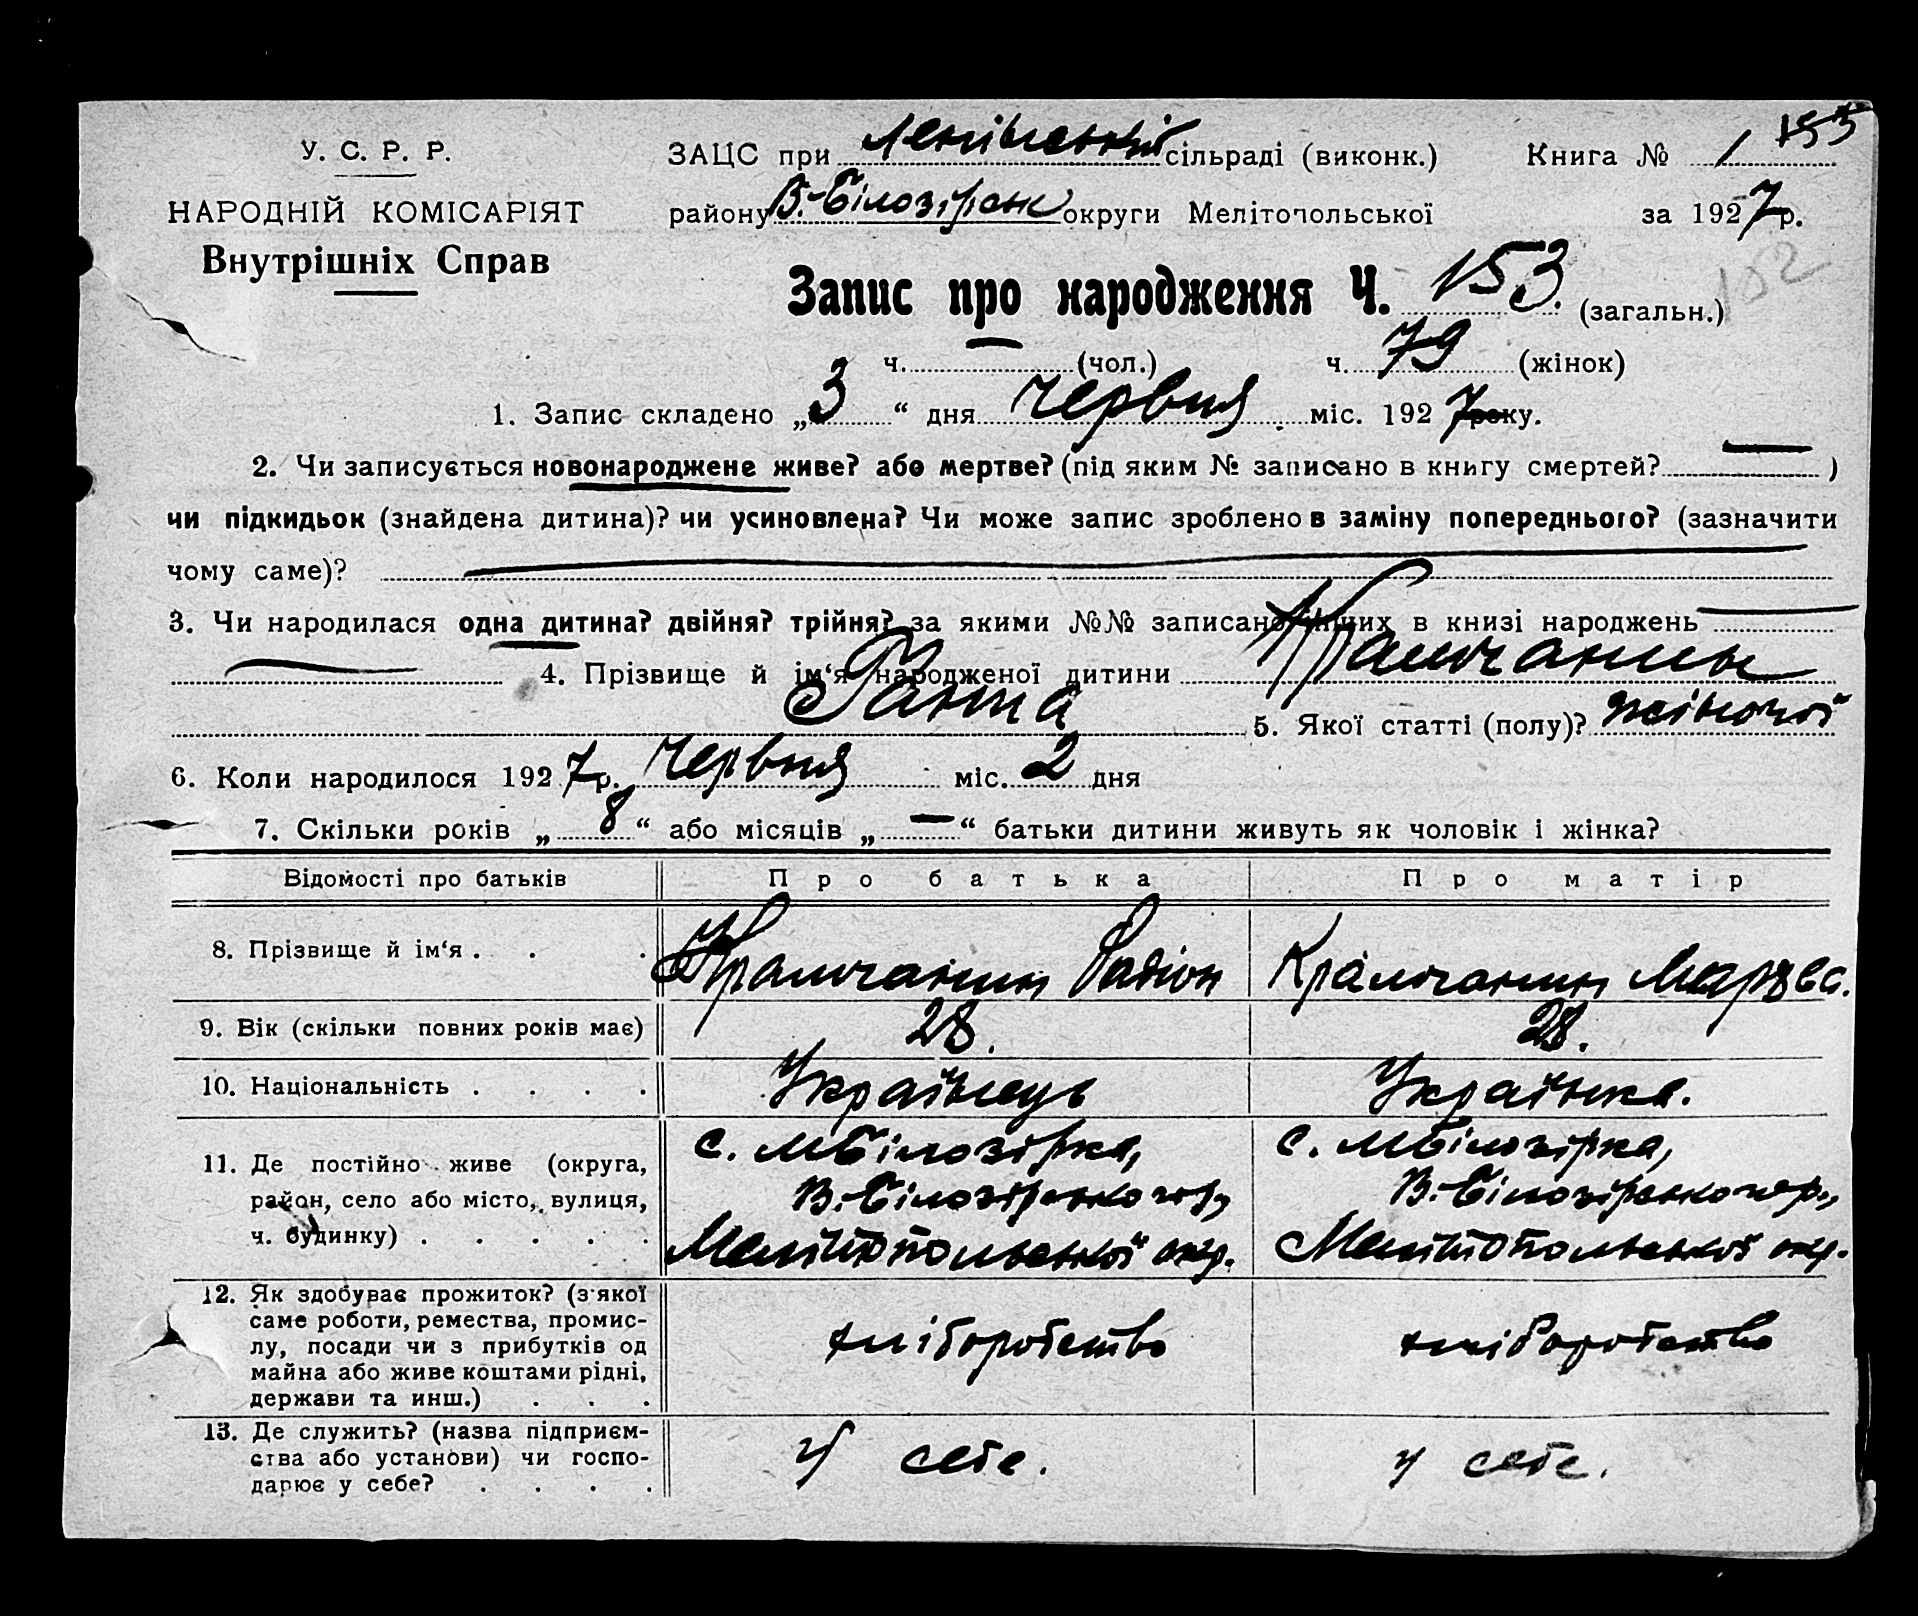 У. С. Р. Р.
НАРОДНІЙ КОМІСАРІЯТ
Внутрішніх Справ
ЗАЦС при Ленінський сільраді (виконк.) Книга № 1 153
району В.-Білозірськ округи Мелітопольської за 1927 р.
152
Запис про народження Ч. 153 (загальн.)
ч. — (чол.) ч. 79 (жінок)
1. Запис складено „3“ дня червня міс. 1927 року.
2. Чи записується новонароджене живе? або мертве? (під яким № записано в книгу смертей? — )
чи підкидьок (знайдена дитина)? чи усиновлена? Чи може запис зроблено в заміну попереднього? (зазначити
чому саме)?
3. Чи народилася одна дитина? двійня? трійня? за якими №№ записано інших в книзі народжень —
— 4. Прізвище й ім‘я народженої дитини Крамчанин
Ганна 5. Якої статті (полу)? жіночої
6. Коли народилося 1927 р. червня міс. 2 дня
7. Скільки років „8“ або місяців „—“ батьки дитини живуть як чоловік і жінка?
Відомості про батьків Про батька Про матір
8. Прізвище й ім‘я . . . Крамчанин Радіон Крамчанин
9. Вік (скільки повних років має) 28. 28.
10. Національність . . . . Українець Українка.
11. Де постійно живе (округа, район, село або місто, вулиця, ч. будинку) . . . . .
с. МБілозірка,
В.-Білозірського р.,
Мелітопольської окр.
с. МБілозірка,
В.-Білозірського р.,
Мелітопольської окр.
12. Як здобуває прожиток? (з якої
саме роботи, ремества, промис-
лу, посади чи з прибутків од
майна або живе коштами рідні,
держави та инш.) . . .
хліборобство хліборобство
13. Де служить? (назва підприєм-
ства або установи) чи госпо-
дарює у себе? . . . .
У себе. у себе.